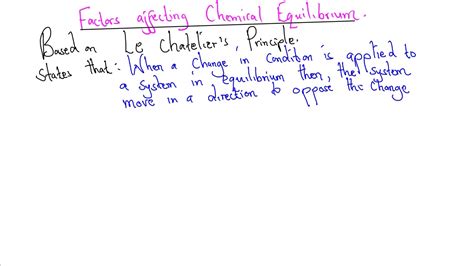 Factors affecting Chemical Equilibrium.
Based on Le Chatelier's Principle.
states that: When a change in condition is applied to
a system in equilibrium then, the system
move in a direction to oppose the change